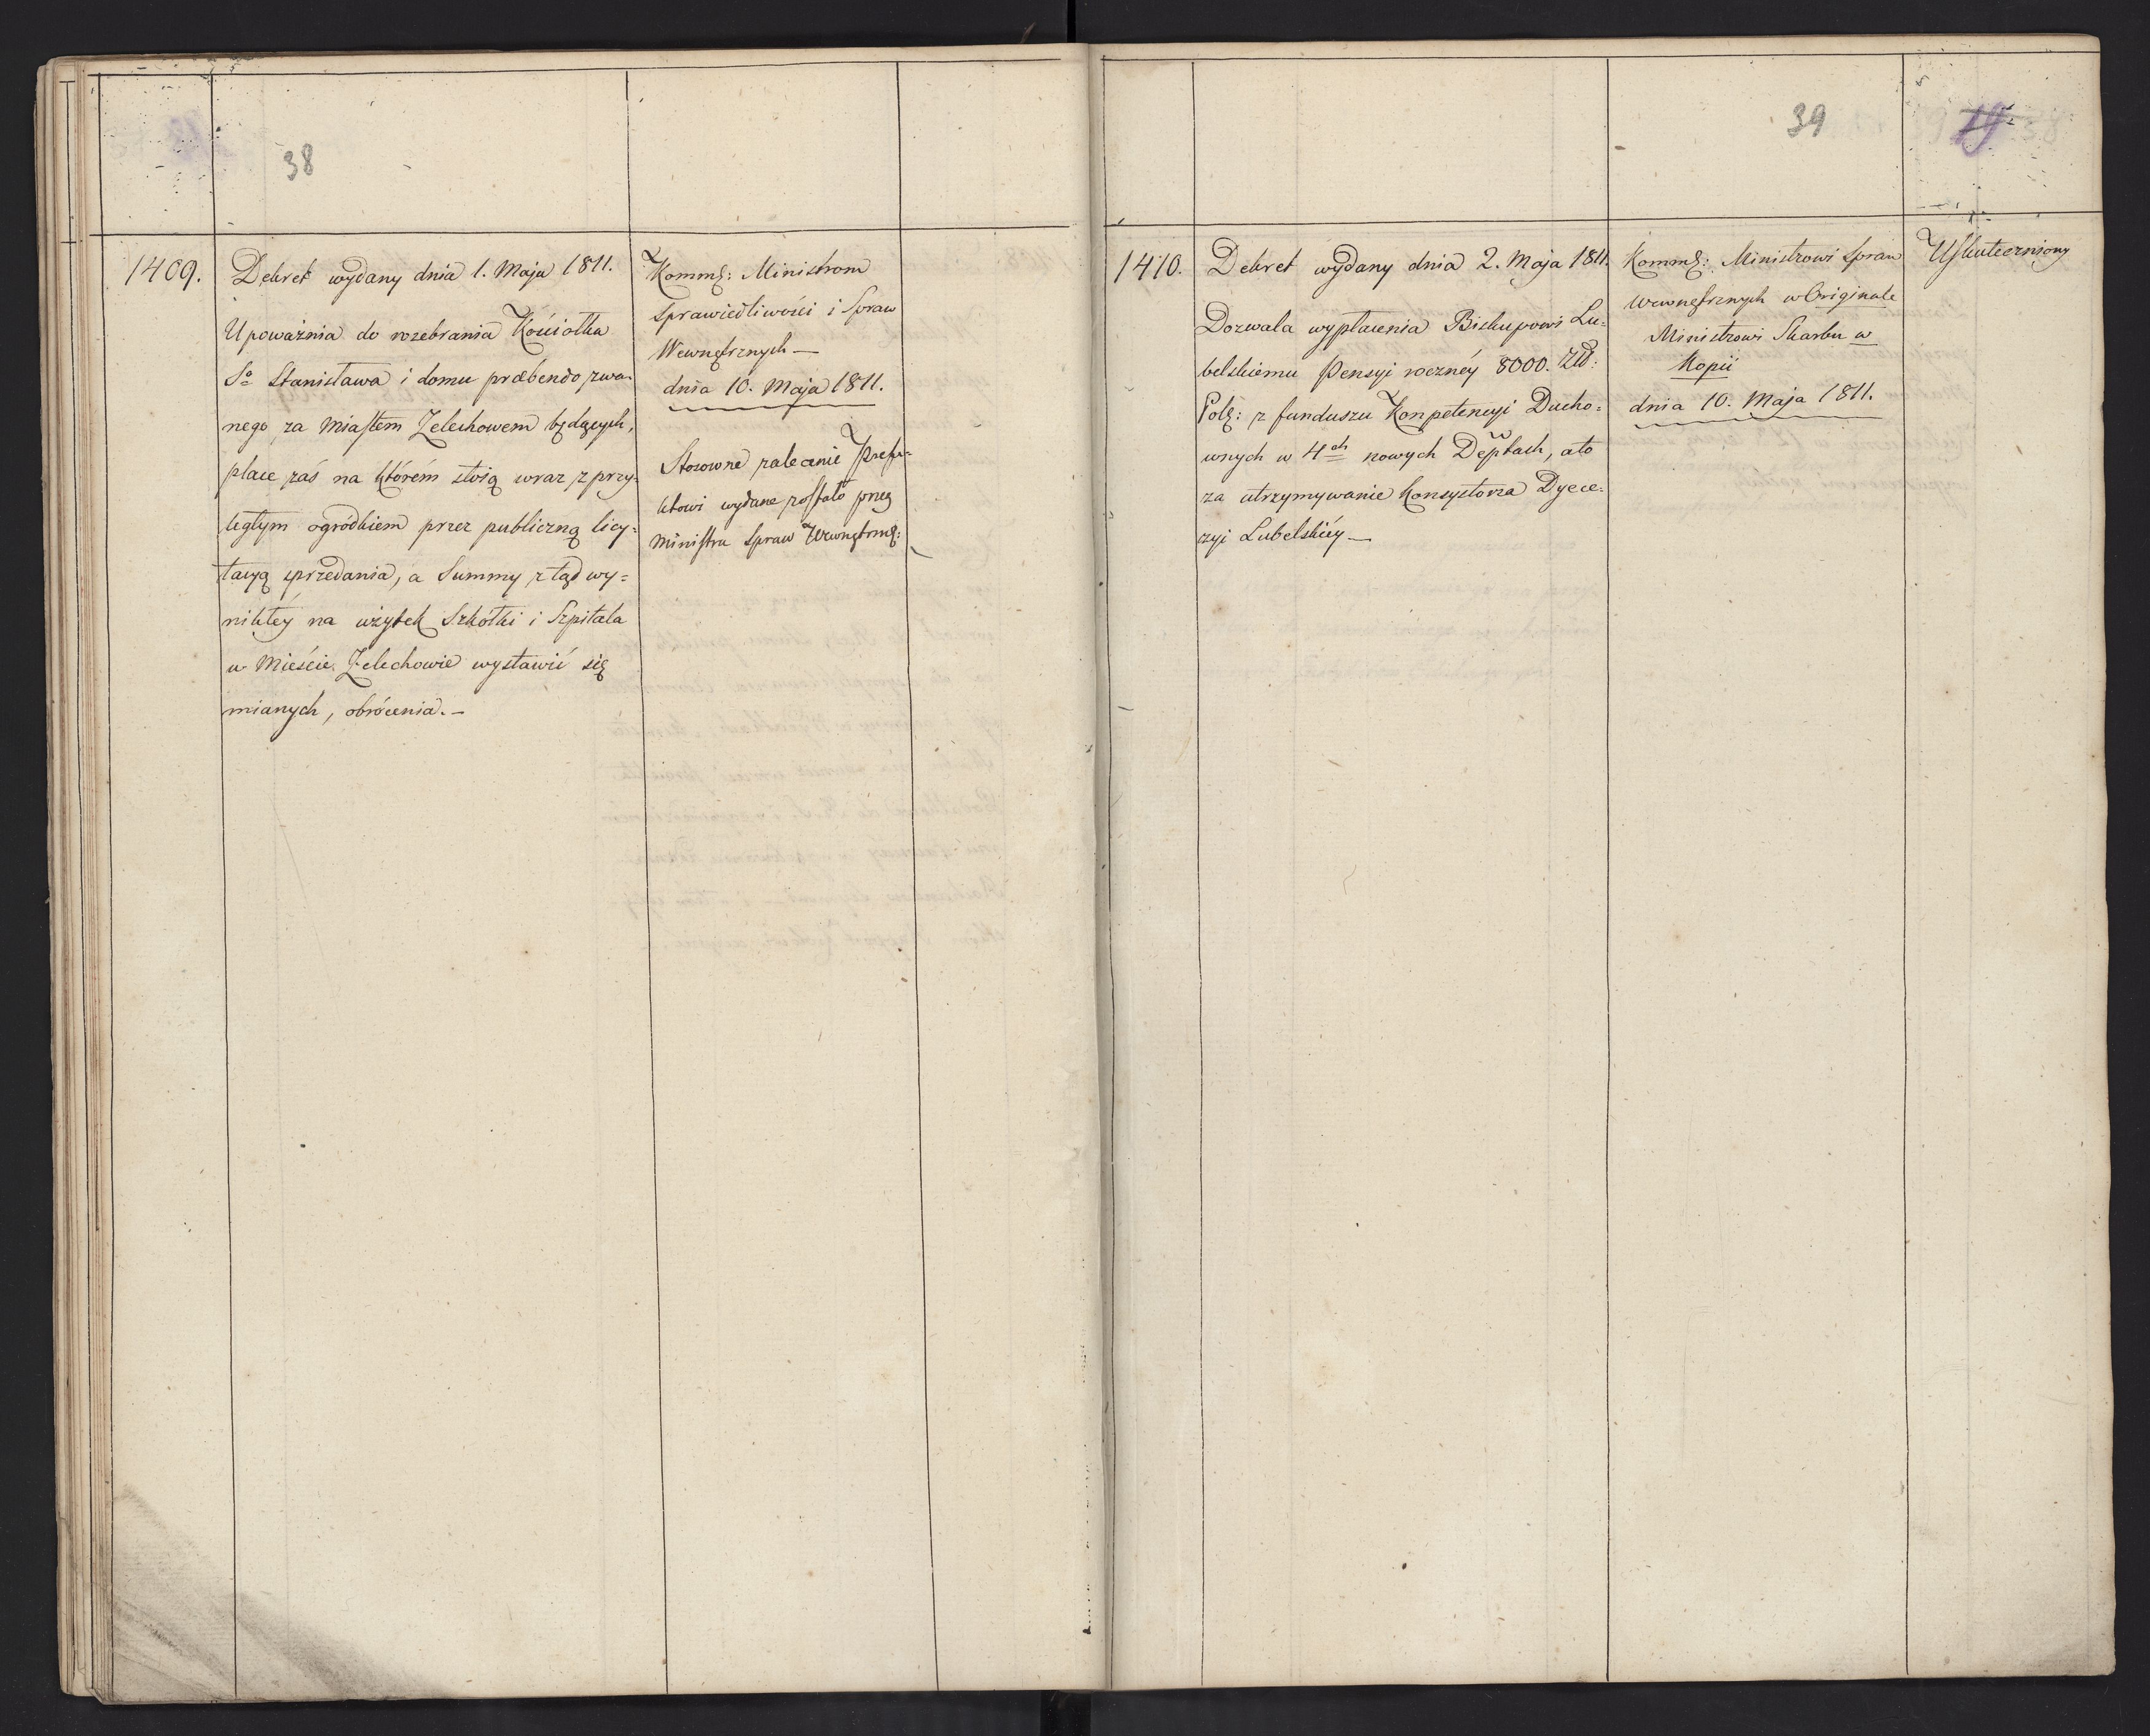 38
1409.
Dekret wydany dnia 1. Maja 1811.
Upoważnia do rozebrania Kościołka
So Stanisława i domu præbendo zwa-
nego za Miastem Zelechowem będących,
place zaś na którém stoią wraz z przy-
ległym ogródkiem przez publiczną licy=
tacyą sprzedania, a Summy z tąd wy=
nikłéy na użytek Szkółki i Szpitala
w Mieście Zelechowie wystawić się
mianych, obrócenia.—
Kommg: Ministrom
Sprawiedliwości i Spraw
Wewnętrznych—
dnia 10. Maja 1811.
Stosowne zalecenie Prefe-
ktowi wydane zostało przez
Ministra Spraw Wewnętrzng:
39
19
38
1410.
Dekret wydany dnia 2. Maja 1811.
Dozwala wypłacenia Biskupowi Lu=
belskiemu Pensyi rocznéy 8000. Złł:
Polg: z funduszu Konpetencyi Ducho=
wnych w 4ch nowych Depwtach, ato
za utrzymywanie Konsystorza Dyece=
zyi Lubelskiéy—
Kommg: Ministrowi Spraw
Wewnętrznych w Originale
Ministrowi Skarbu w
Kopii
dnia 10. Maja 1811.
Uskuteczniony